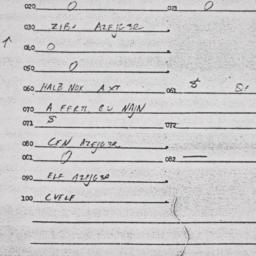 020 0 023 0
030 AZEJGER
040 0
050 0
060 HALB NOX AXT 061 5
070 A FERTI. CU NAJN
071 5 072
080 CFN AZEJGER
081 0 082 —
090 ELF AZEJGER
100 CVELF